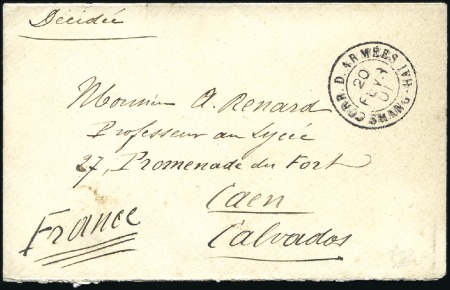 Décidée
CORR. D. ARMÉES
20
FEVR
01
Monsieur A. Renard
Professeur au lycée
27, Promenade du Fort
Caen
Calvados
France